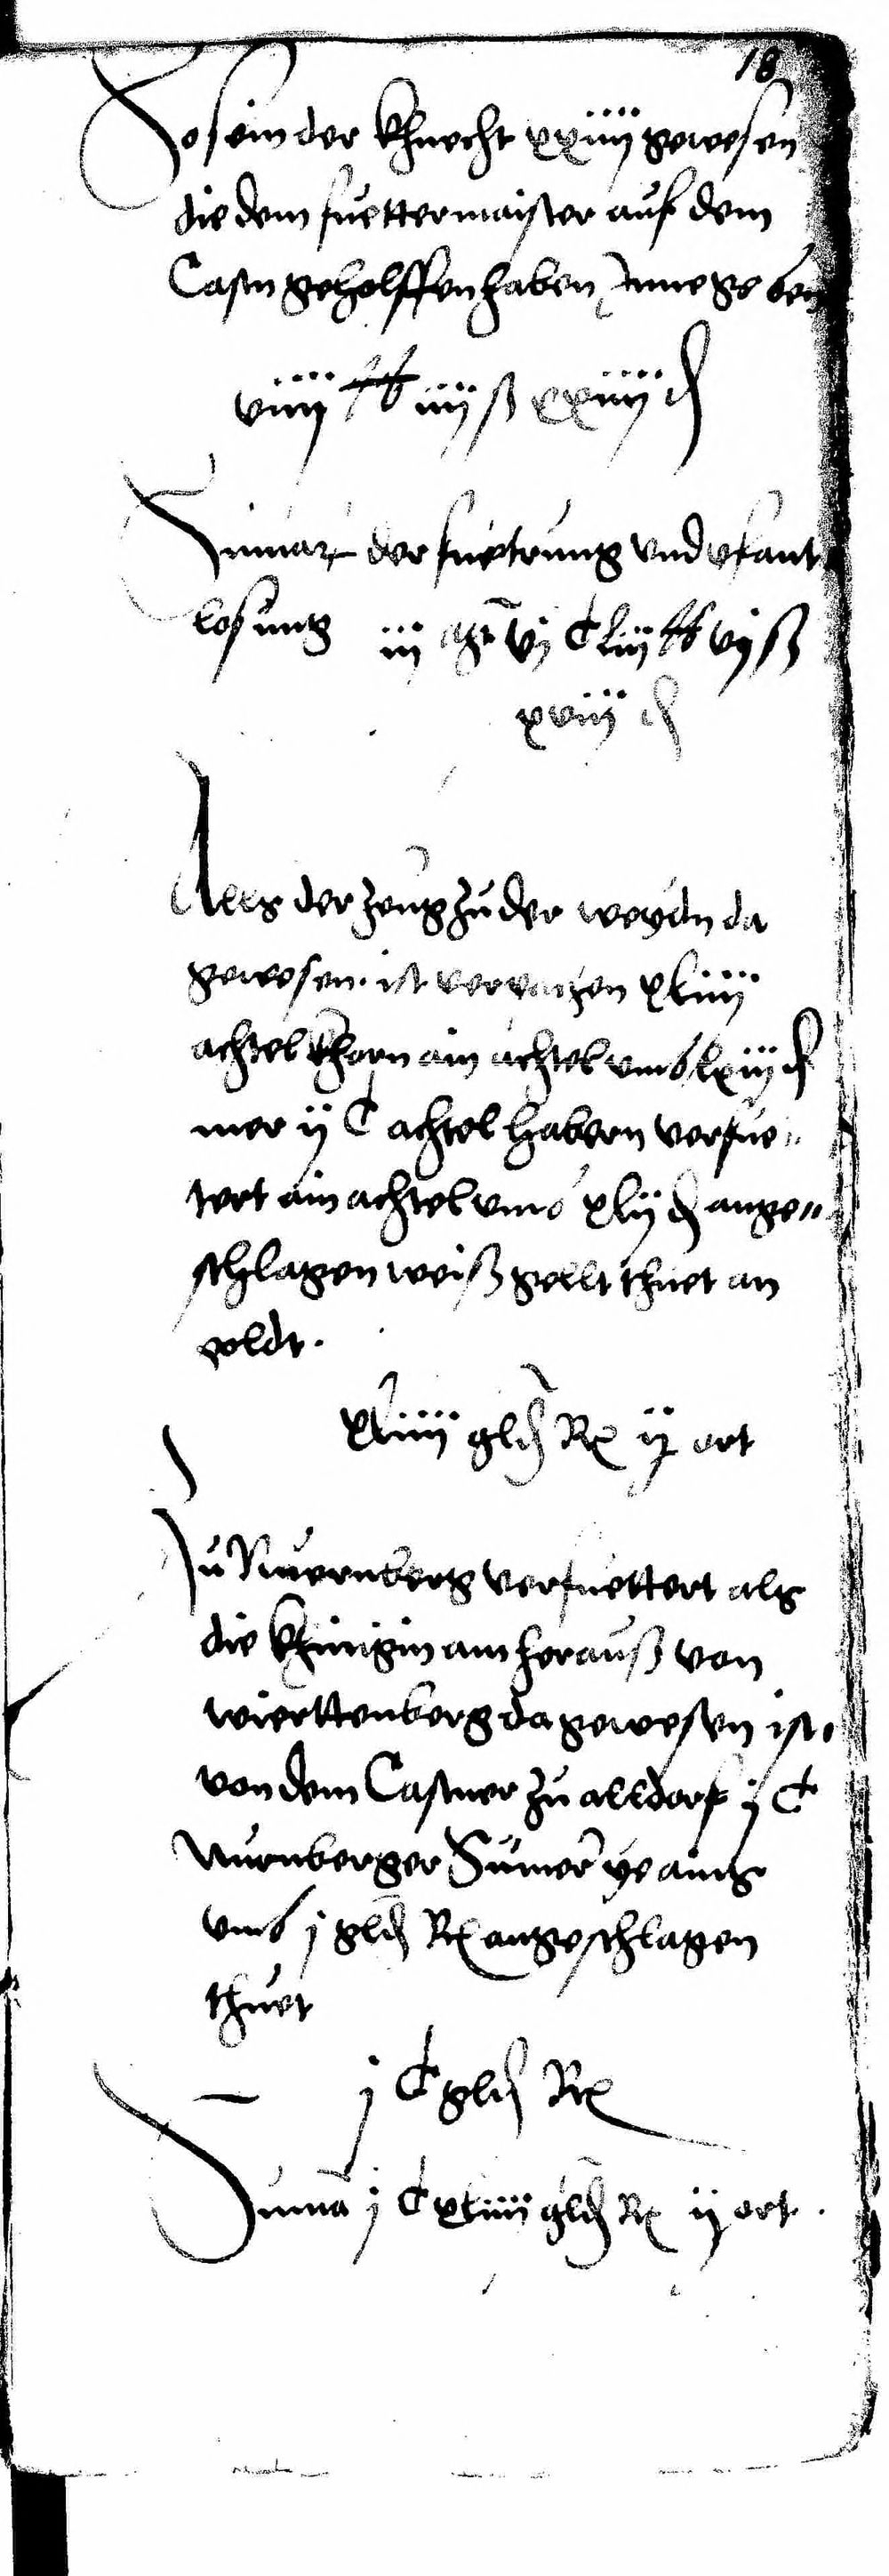 18
So sein der Khnecht xxiiii gewesen
die dem fuettermaister auf dem
Casm geholffen haben Innegeben
viiii lb iiii ß xxiiii d
Sumar der fuetrung vnd pfant
losung iii M vj C liii lb vij ß
xviii d
Alls der zeug zu der weydn da
gewesen. ist verpachen xliiii
achtel Khorn ain achtel vmb lxiii d
mer ij C achtel habern verfue„
tert ain achtel vmb xlij d ange„
schlagen weiß gellt thuet an
goldt.
xliiii gld Rx ij ort
Zu Nuernberg verfuettert als
die Khinigin am herauß von
wierttenberg da gewesen ist.
von dem Castner zu alldorf j C
Nurnberger Sumer ye ains
vmb j gld Rx angeschlagen
thuet
— j C gld Rx
Suma j C xliiii gld Rx ij ort.